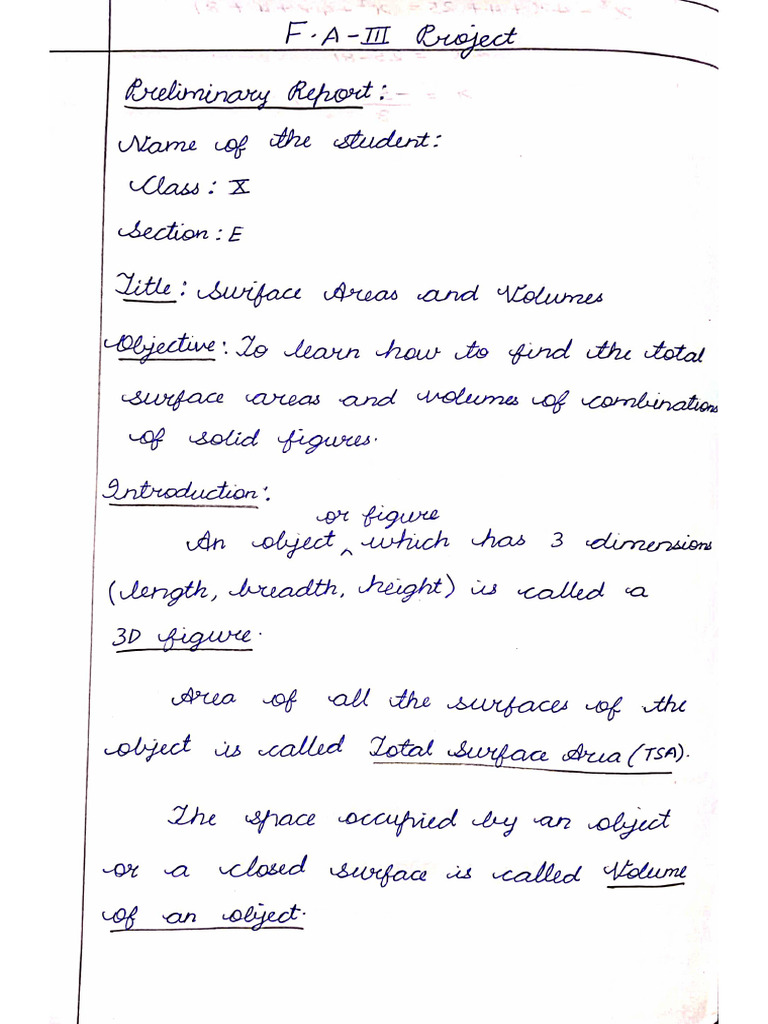 F.A-III Project
Preliminary Report:
Name of the student:
Class: X
Section: E
Title: Surface Areas and Volumes
Objective: To learn how to find the total
surface areas and volumes of combinations
of solid figures.
Introduction:
or figure
An object ^ which has 3 dimensions
(length, breadth, height) is called a
3D figure.
Area of all the surfaces of the
object is called Total Surface Area (TSA).
The space occupied by an object
or a closed surface is called Volume
of an object.